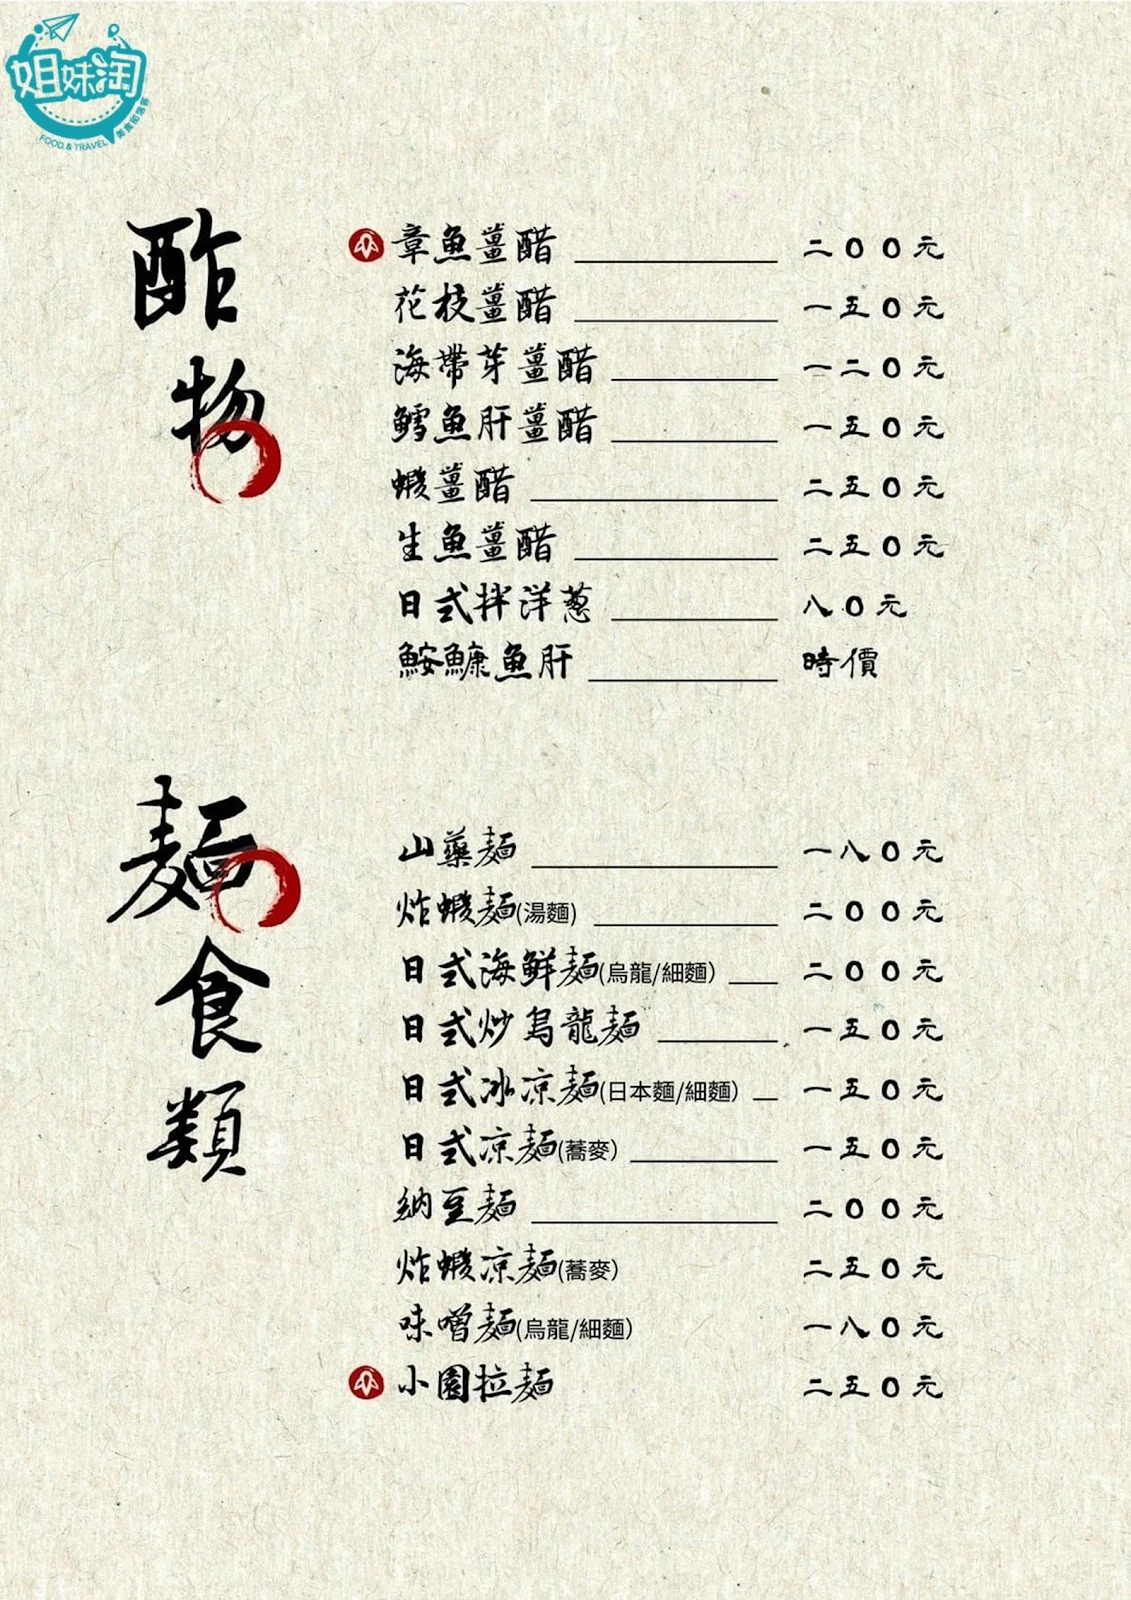 姐妹淘
FOOD & TRAVEL 美食部落客
酢物
章魚薑醋 二００元
花枝薑醋 一五０元
海帶芽薑醋 一二０元
鱈魚肝薑醋 一五０元
蝦薑醋 二五０元
生魚薑醋 二五０元
日式拌洋蔥 八０元
鮟鱇魚肝 時價
麵食類
山藥麵 一八０元
炸蝦麵(湯麵) 二００元
日式海鮮麵(烏龍/細麵) 二００元
日式炒烏龍麵 一五０元
日式冰涼麵(日本麵/細麵) 一五０元
日式涼麵(蕎麥) 一五０元
納豆麵 二００元
炸蝦涼麵(蕎麥) 二五０元
味噌麵(烏龍/細麵) 一八０元
小園拉麵 二五０元